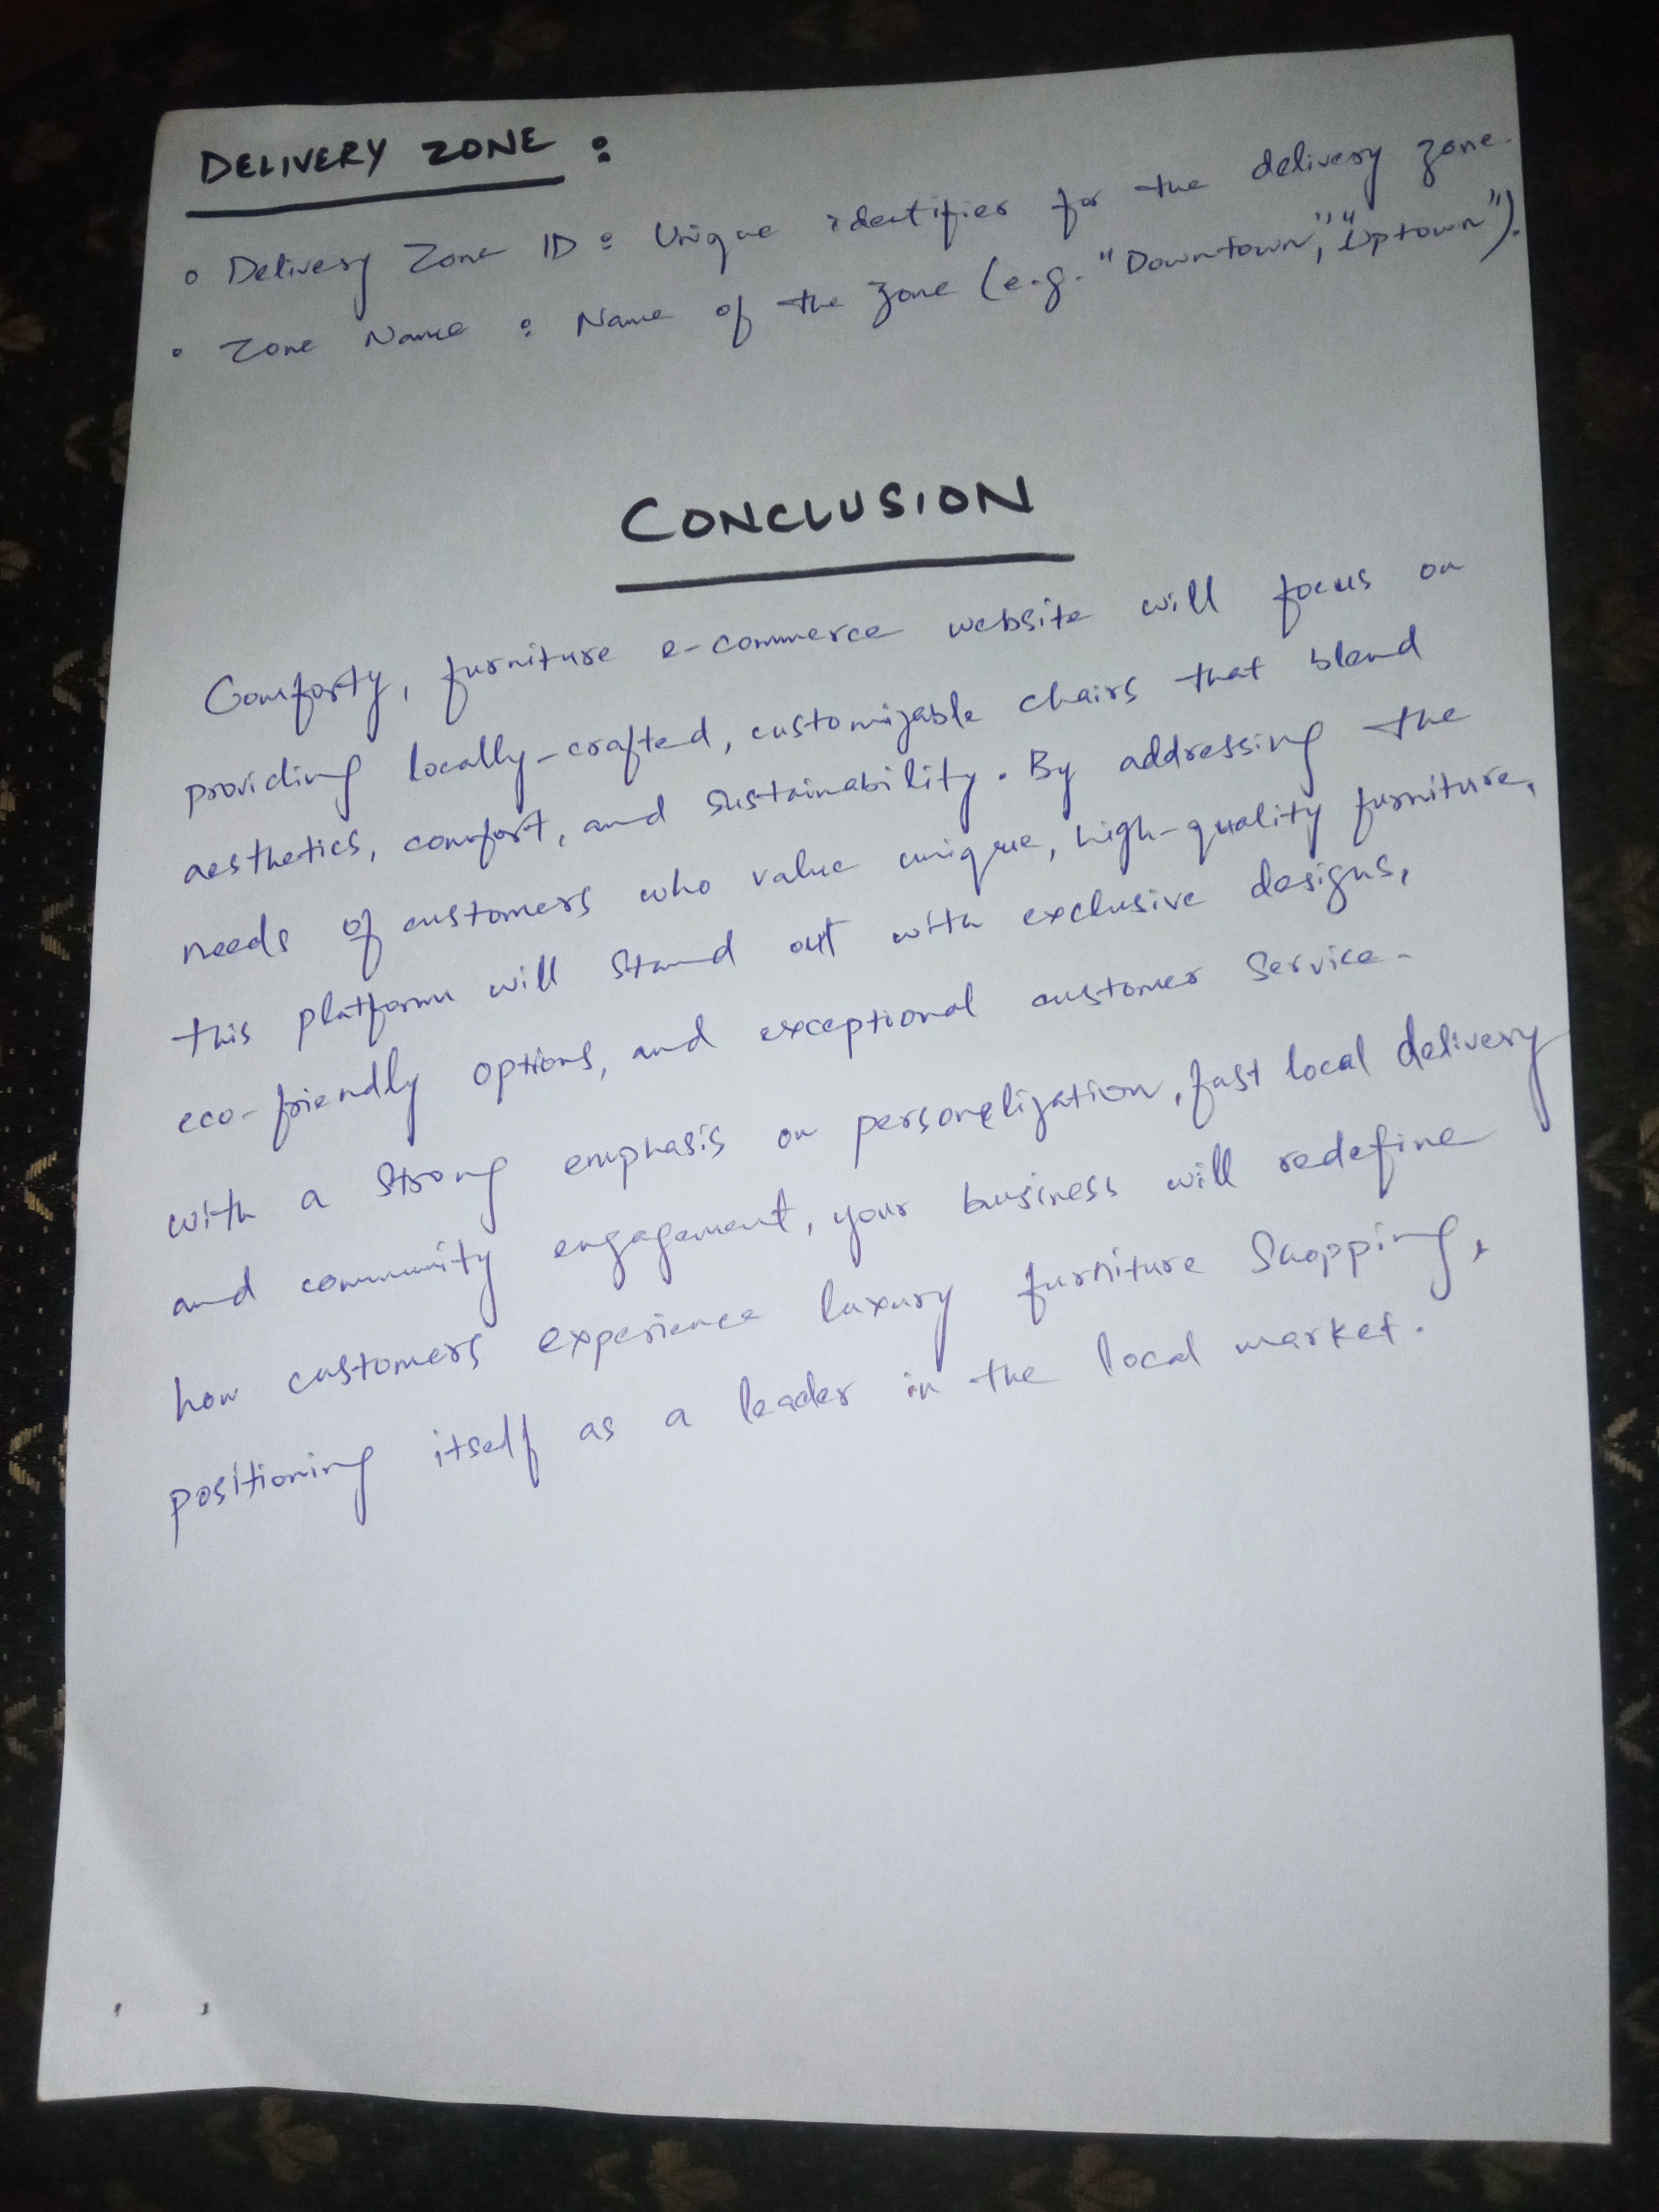 DELIVERY ZONE :
• Delivery Zone ID : Unique identifier for the delivery zone.
• Zone Name : Name of the zone (e.g. "Downtown", "Uptown").
CONCLUSION
Comforty, furniture e-commerce website will focus on
providing locally-crafted, customizable chairs that blend
aesthetics, comfort, and sustainability. By addressing the
needs of customers who value unique, high-quality furniture,
this platform will stand out with exclusive designs,
eco-friendly options, and exceptional customer service.
with a strong emphasis on personalization, fast local delivery
and community engagement, your business will redefine
how customers experience luxury furniture shopping,
positioning itself as a leader in the local market.